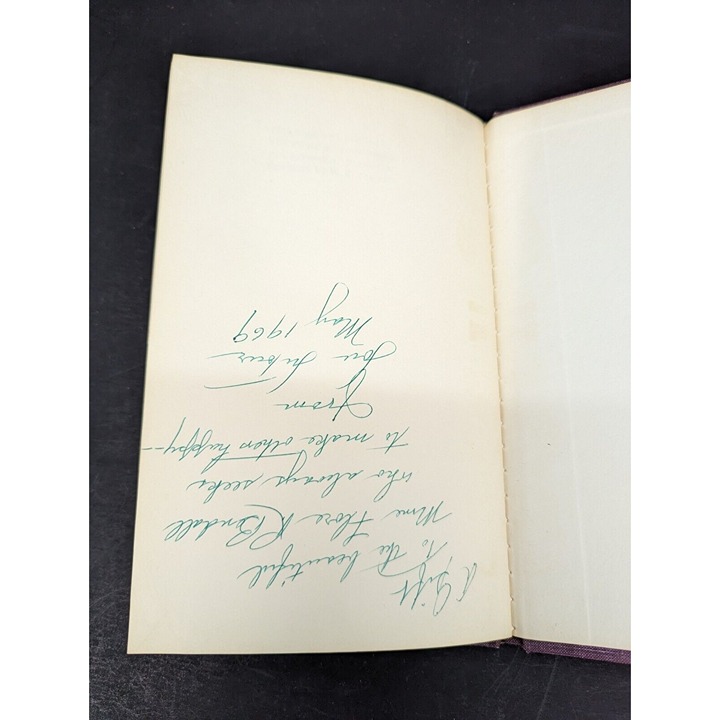 A Gift
to the beautiful
Mme Flore K Randall
who always seeks
to make others happy—
From
Lou
May 1969